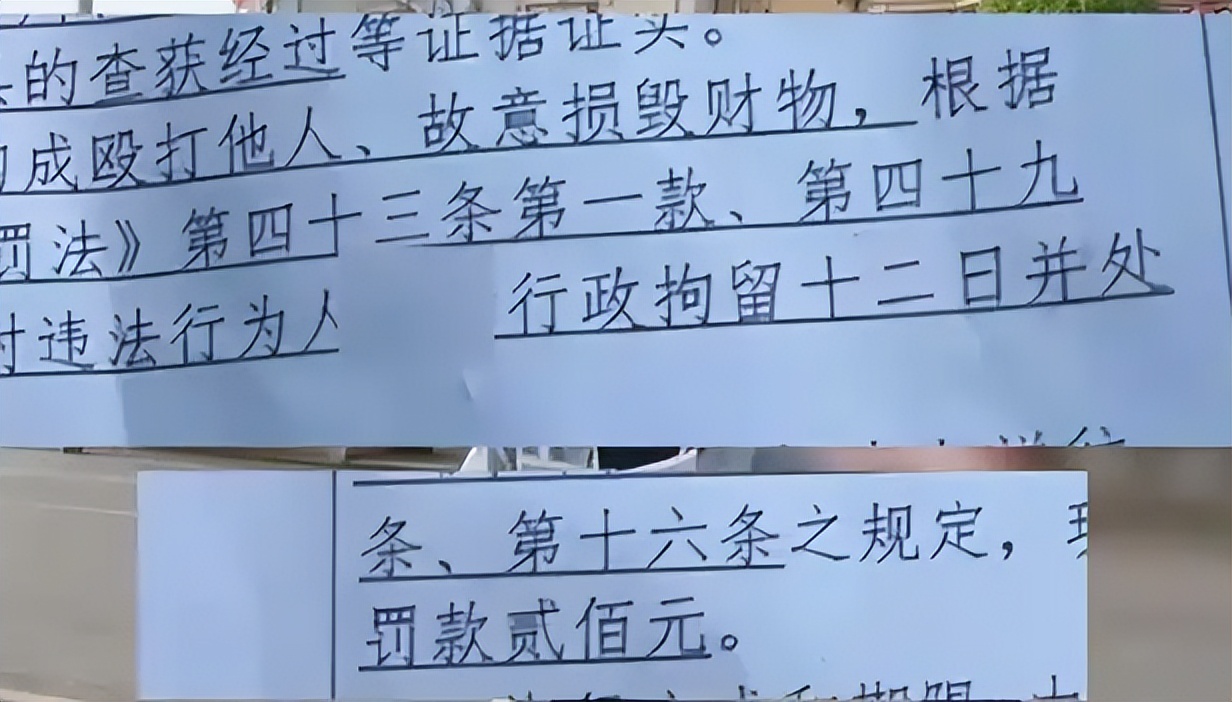 的查获经过等证据证实。
成殴打他人、故意损毁财物，根据
罚法》第四十三条第一款、第四十九
对违法行为人 行政拘留十二日并处
条、第十六条之规定，现
罚款贰佰元。